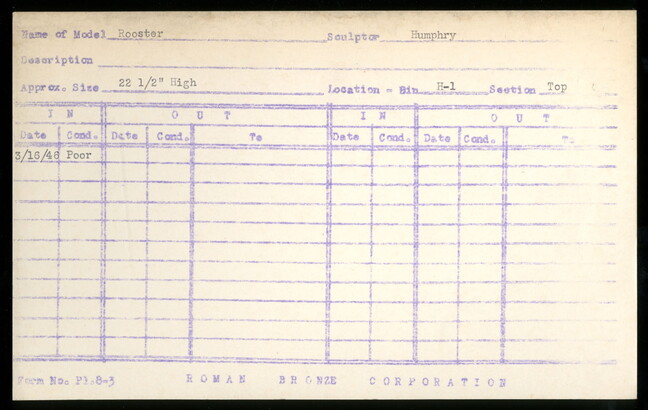 Name of Model Rooster Sculptor Humphry
Description
Approx. Size 22 1/2" High Location - Bin H-1 Section Top
I N O U T I N O U T
Date Cond. Date Cond. To Date Cond. Date Cond. To
3/16/46 Poor
Form No. Pl.8-3 ROMAN BRONZE CORPORATION